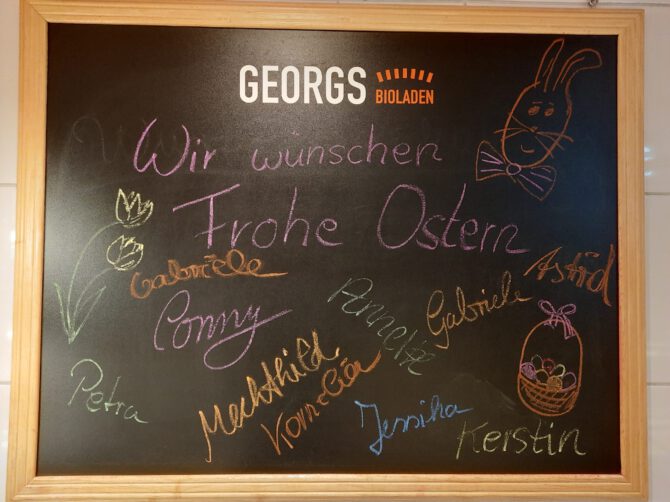 GEORGS BIOLADEN
Wir wünschen
Frohe Ostern
Gabriele
Astrid
Conny
Annette
Gabriele
Petra
Mechthild
Kornelia
Jessika
Kerstin